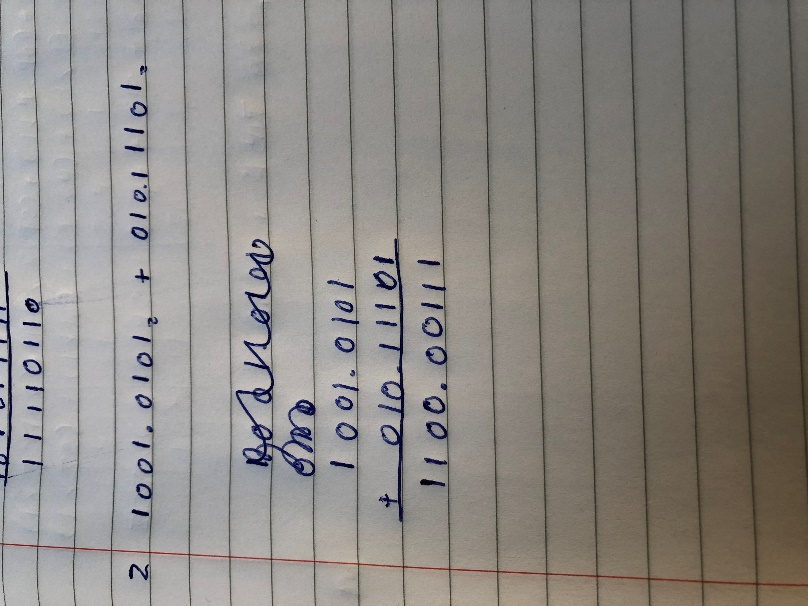 11110110
2 1001.0101₂ + 010.11101₂
1001.0101
+ 010.11101
1100.00111